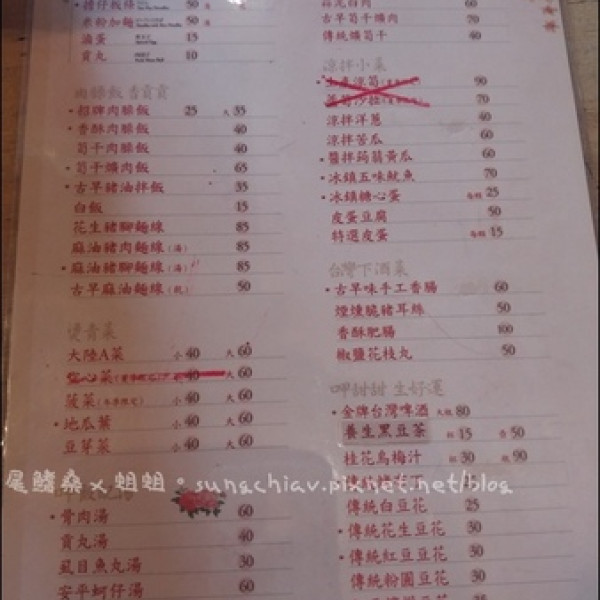 擔仔板條 50
米粉加麵 50
滷蛋 15
貢丸 10
肉臊飯 香貢貢
·招牌肉臊飯 25 大35
·香酥肉臊飯 40
筍干肉臊飯 40
·筍干爌肉飯 65
·古早豬油拌飯 35
白飯 15
花生豬腳麵線 85
麻油豬肉麵線(湯) 85
·麻油豬腳麵線(湯) 85
古早麻油麵線(乾) 50
燙青菜
大陸A菜 小40 大60
空心菜 40 大60
菠菜(冬季限定) 小40 大60
·地瓜葉 小40 大60
豆芽菜 小40 大60
·骨肉湯 60
貢丸湯 40
虱目魚丸湯 30
安平蚵仔湯 60
蒜泥白肉 60
古早筍干爌肉 70
傳統爌筍干 40
涼拌小菜
90
蘆筍沙拉 70
涼拌洋蔥 40
涼拌苦瓜 60
·醬拌蒟蒻黃瓜 60
·冰鎮五味魷魚 70
·冰鎮糖心蛋 每粒25
皮蛋豆腐 50
特選皮蛋 每粒15
台灣下酒菜
·古早味手工香腸 60
煙燻脆豬耳絲 50
香酥肥腸 100
椒鹽花枝丸 50
呷甜甜 生好運
·金牌台灣啤酒 大瓶80
養生黑豆茶 杯15 壺50
桂花烏梅汁 杯30 瓶90
傳統白豆花 25
·傳統花生豆花 30
·傳統紅豆豆花 30
傳統粉圓豆花 30
尾鰭桑×蛆蛆·sungchiav.pixnet.net/blog